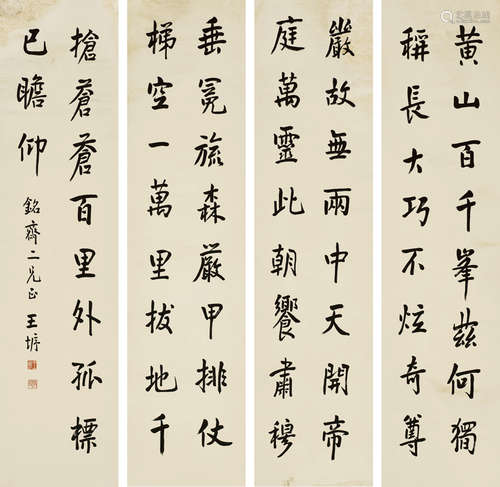 黄山百千峯茲何獨
稱長大巧不炫奇尊
嚴故無兩中天開帝
庭萬靈此朝饗肅穆
垂冕旒森嚴甲排仗
梯空一萬里拔地千
搶蒼蒼百里外孤標
已瞻仰
銘齋二兄正 王墉